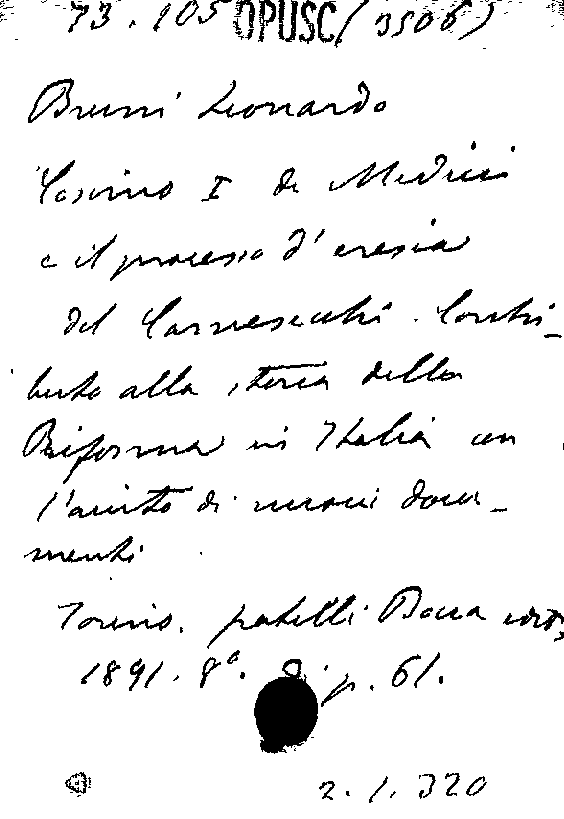 73.105 OPUSC (3506)
Bruni Leonardo
Cosimo I de Medici
e il processo d'eresia
del Carnesecchi. Contri-
buto alla storia della
Riforma in Italia con
l'aiuto di nuovi docu-
menti
Torino. fratelli Bocca edit.,
1891. 8°. Di p. 61.
2.1.320